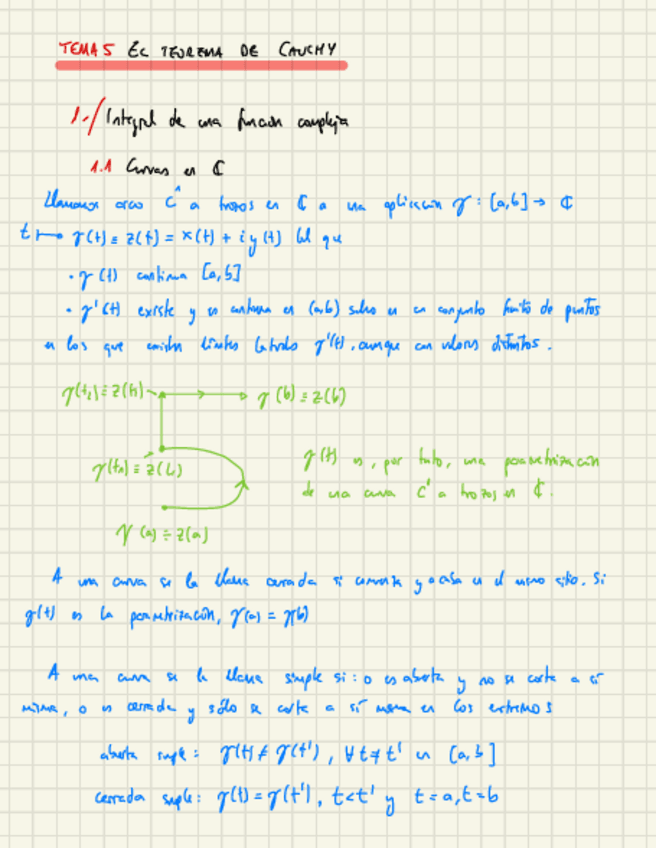 TEMA 5 EL TEOREMA DE CAUCHY
1.-/ Integral de una función compleja
1.1 Curvas en ℂ
Llamamos arco C¹ a trozos en ℂ a una aplicación γ : [a,b] → ℂ
t ↦ γ(t) ≡ z(t) = x(t) + i y(t) tal que
· γ(t) continua [a,b]
· γ'(t) existe y es continua en (a,b) salvo en un conjunto finito de puntos
en los que existen límites laterales γ'(t), aunque con valores distintos.
γ(t₂) ≡ z(t₂) γ(b) ≡ z(b)
γ(t₁) ≡ z(t₁)
γ(t) es, por tanto, una parametrización
de una curva C¹ a trozos en ℂ.
γ(a) ≡ z(a)
A una curva se la llama cerrada si comienza y acaba en el mismo sitio. Si
γ(t) es la parametrización, γ(a) = γ(b)
A una curva se la llama simple si: o es abierta y no se corta a sí
misma, o es cerrada y sólo se corta a sí misma en los extremos
abierta simple: γ(t) ≠ γ(t'), ∀ t ≠ t' en [a,b]
cerrada simple: γ(t) = γ(t'), t < t' y t = a, t = b